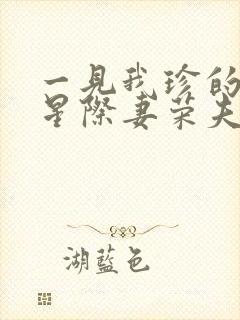 一見我珍的
星際妻荣夫
湖藍色